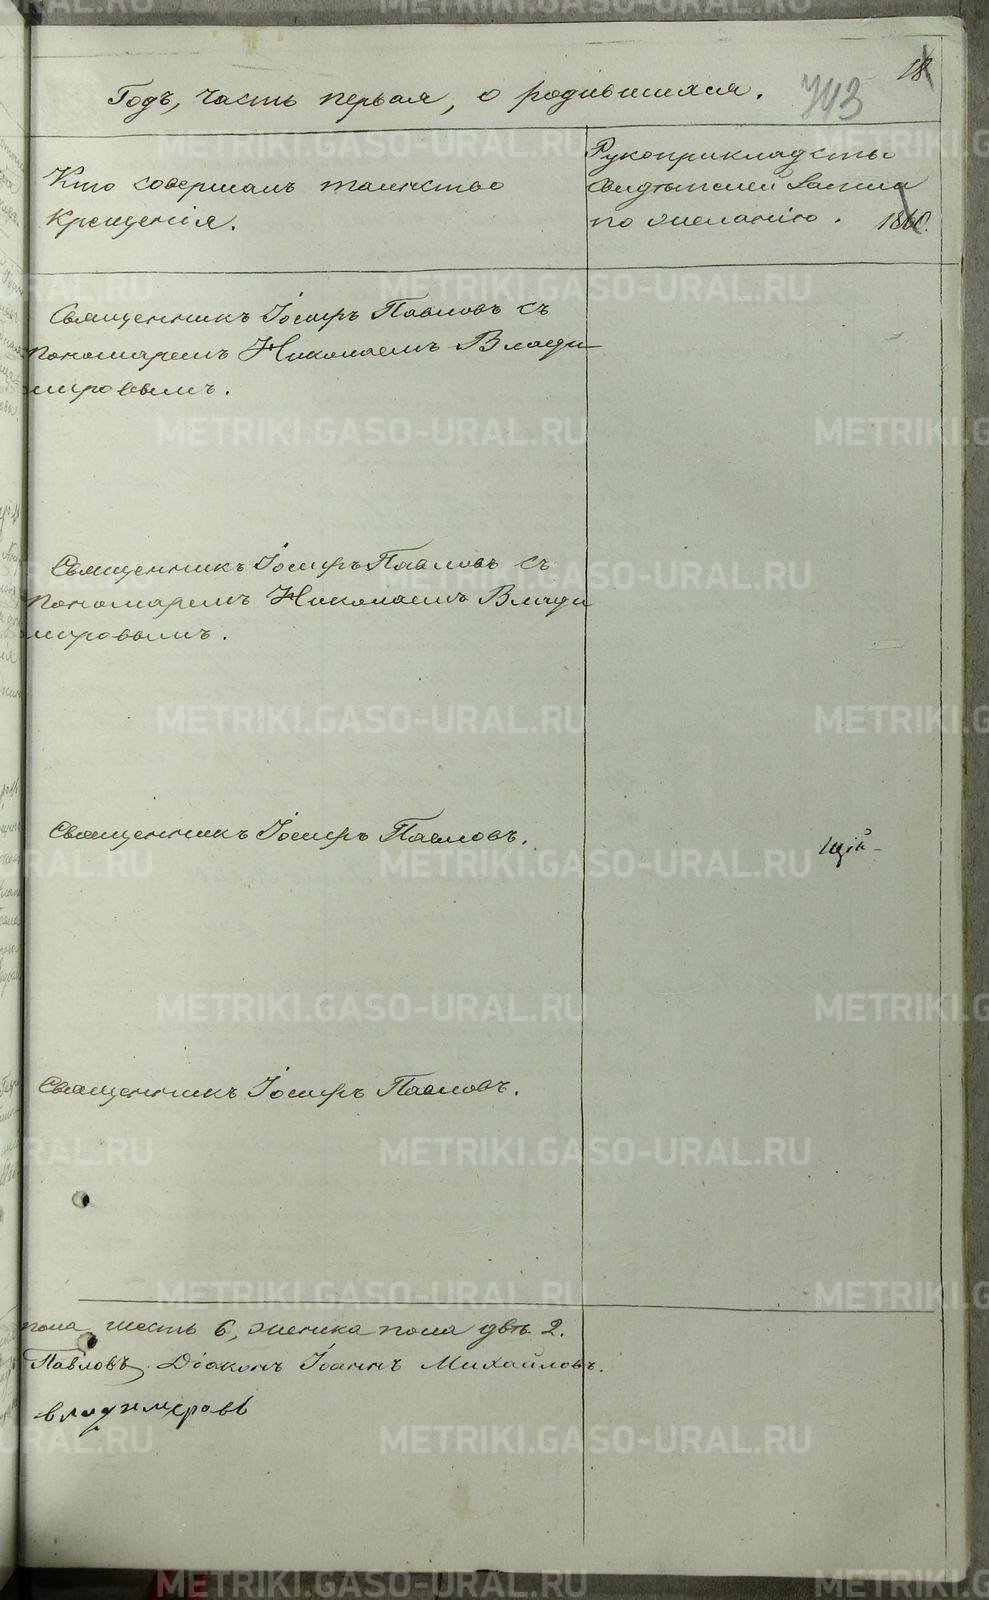 18
Годъ, часть первая, о родившихся.
713
Кто совершалъ таинство
Крещенія.
Рукоприкладство
Свидѣтелей записи
по желанію.
1860.
Священникъ Іосифъ Павловъ съ
Пономаремъ Николаемъ Влади
мировымъ.
Священникъ Іосифъ Павловъ съ
Пономаремъ Николаемъ Влади
мировымъ.
Священникъ Іосифъ Павловъ.
щій
Священникъ Іосифъ Павловъ.
пола шесть 6, женска пола двѣ 2.
Павловъ. Діаконъ Іоаннъ Михайловъ.
владимеровъ
METRIKI.GASO-URAL.RU